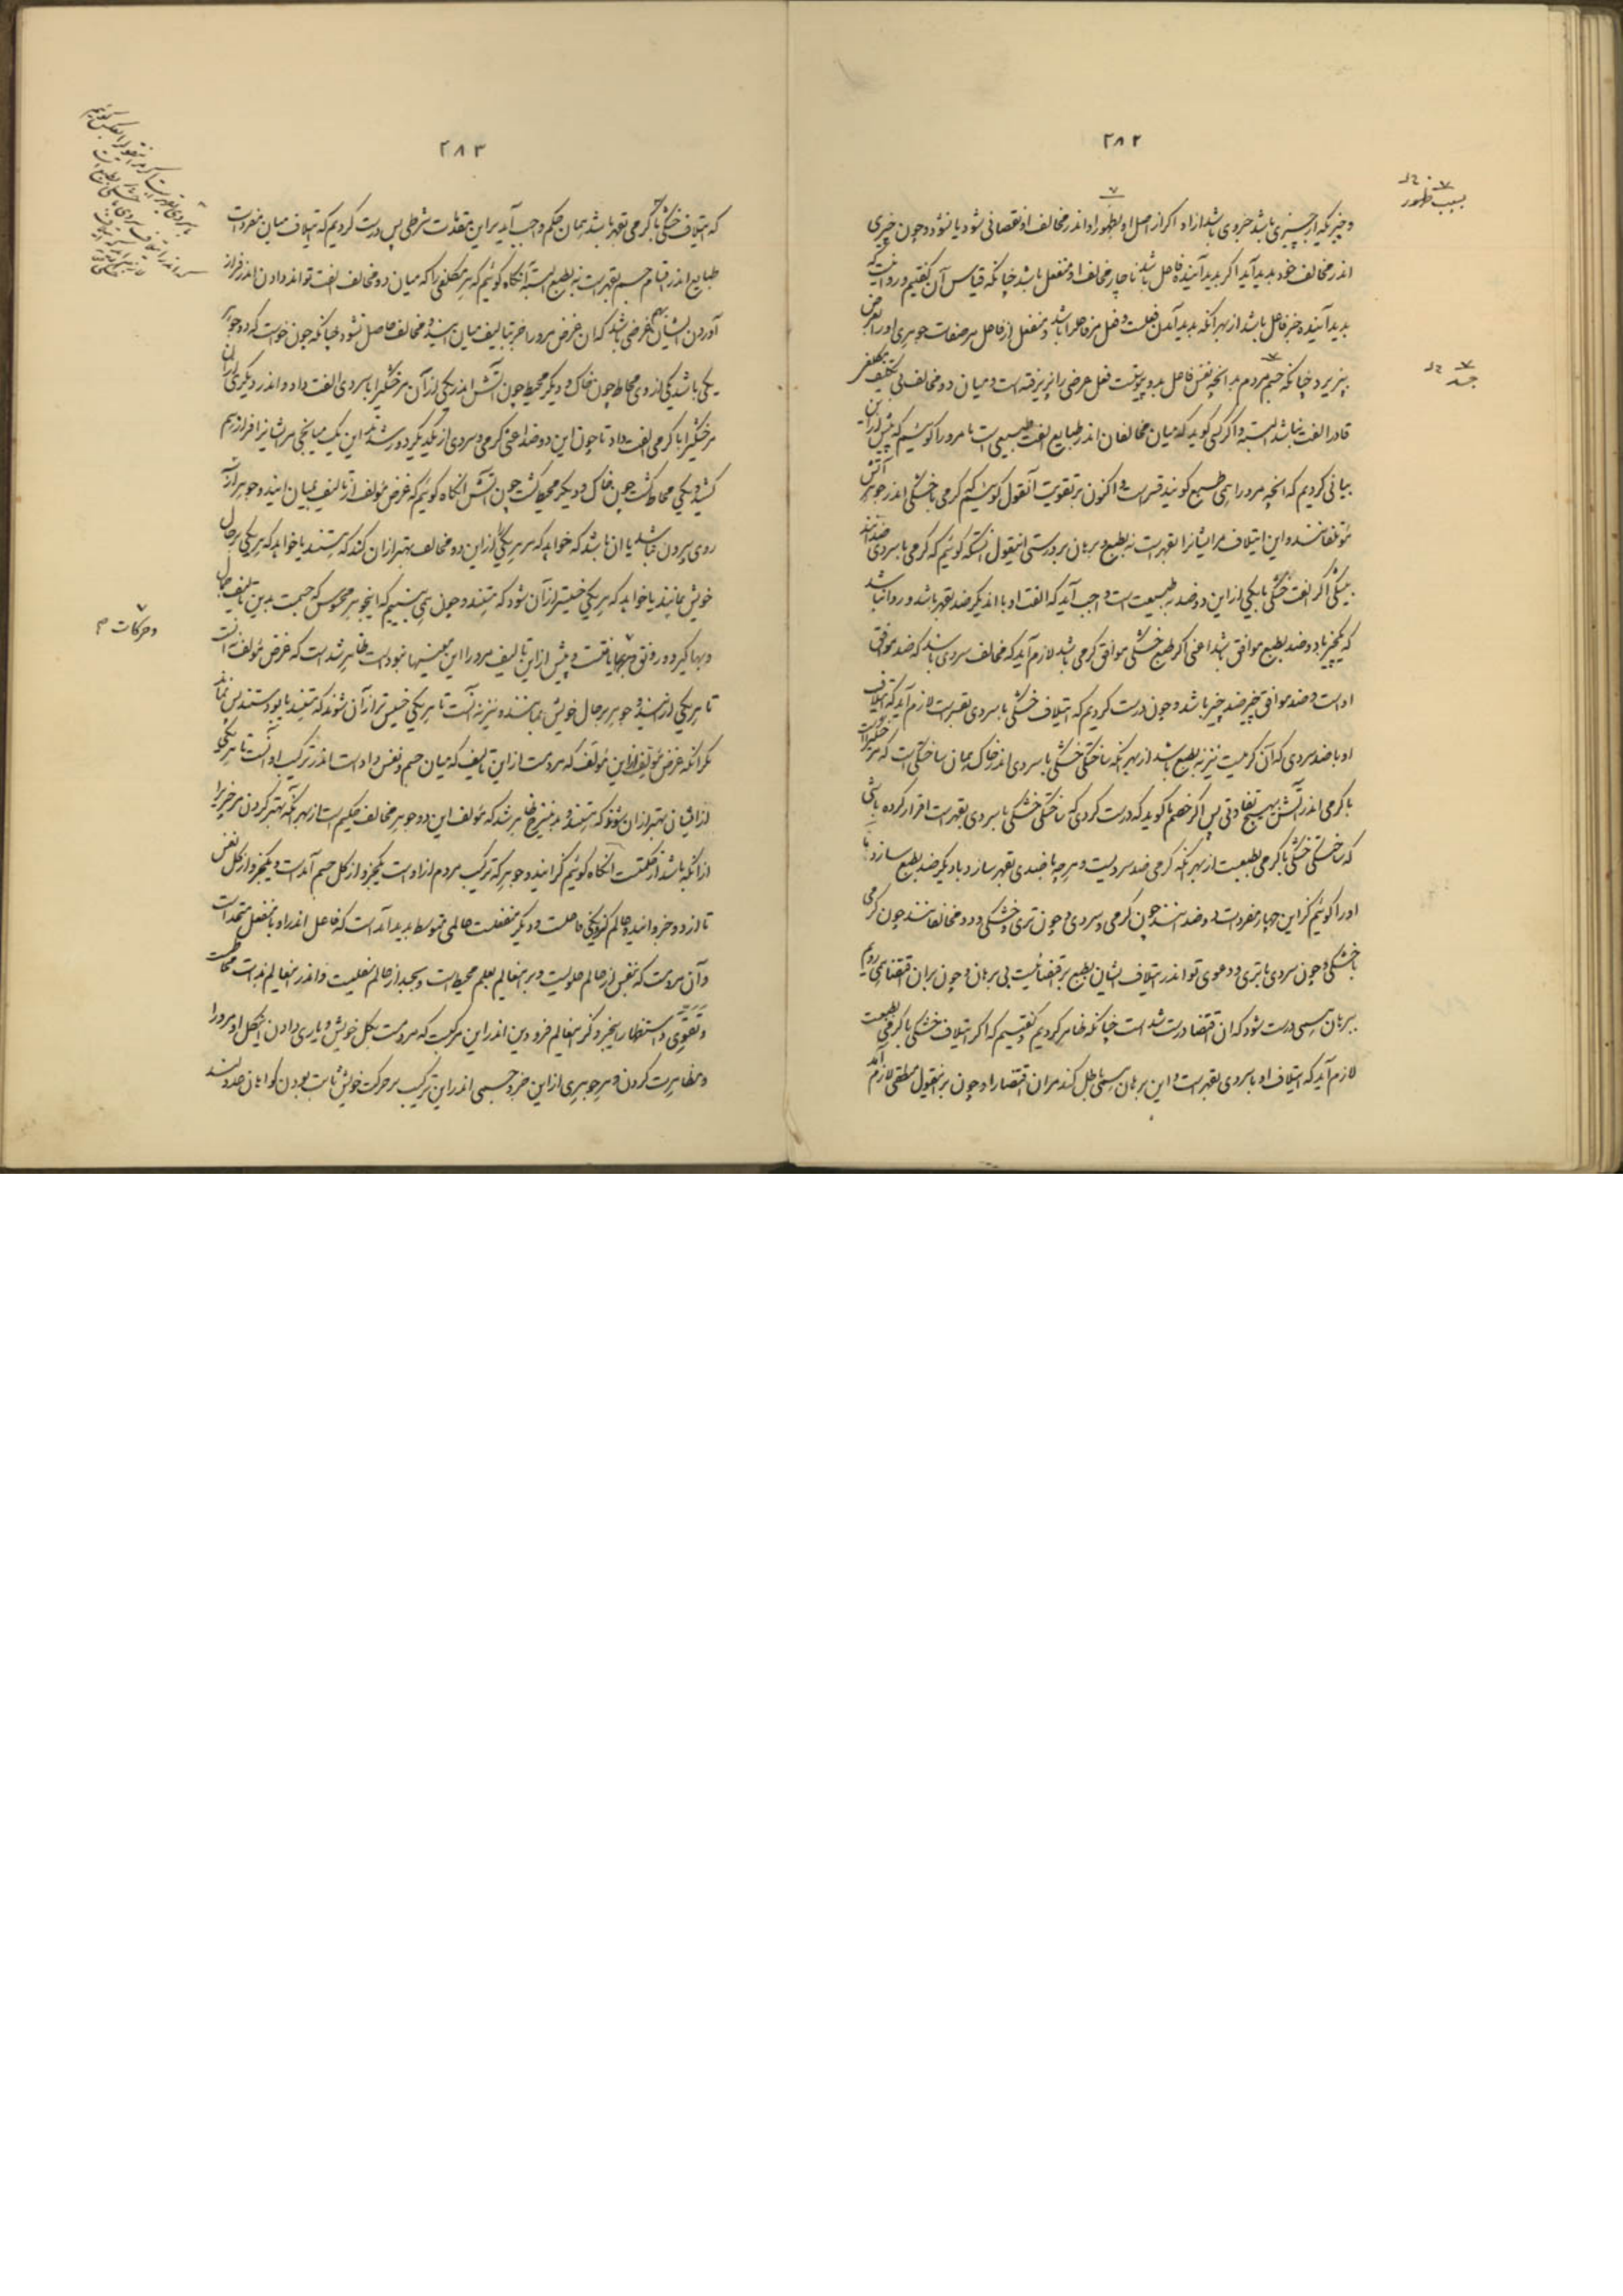 ۲۸۲
و چیزیکه از چیزی باشد جزوی باشد از او اگر از اصل او بظهور او اندر مخالف او نقصانی شود یا نشود و چون چیزی
اندر مخالف خود پدید آید اگر پدید آینده فاعل باشد ناچار مخالف او منفعل باشد چنانکه قیاس آن گفتیم و روا نیست که
پدید آینده جز فاعل باشد از بهر آنکه پدید آمدن فعلست و فعل مر فاعل را باشد و منفعل از فاعل مر صفات جوهری او را بعرض
بپذیرد چنانکه جسم مردم بدانچه نفس فاعل بدو پیوسته است فعل عرضی را پذیرفته است و میان دو مخالف بی تکلیف مکلفی
قادر الفت نباشد البته و اگر کسی گوید که میان مخالفان اندر طبایع الفت طبیعی است ما مر او را گوئیم که پیش از این
بیانی کردیم که آنچه مر او را همی طبع گویند قسر است و اکنون بر تقویت آنقول گوئیم که گرمی با خشکی اندر جوهر آتش
مؤتلفانند و این ایتلاف مر ایشانرا بقهر است نه بطبع و برهان بر درستی اینقول آنستکه گوئیم که گرمی با سردی ضدانند
بیشکی اگر الفت خشکی با یکی از این دو ضد به طبیعت است واجب آید که الفت او با اندیگر ضد بقهر باشد و روا نباشد
که یکچیز با دو ضد بطبع موافق باشد اعنی اگر طبع خشکی موافق گرمی باشد لازم آید که مخالف سردی باشد که ضد موافق
اوست و ضد موافق چیز ضد چیز باشد و چون درست کردیم که ایتلاف خشکی با سردی بقسر است لازم آید که ایتلاف
او با ضد سردی که آن گرمیست نیز نه بطبع باشد از بهر آنکه ساختگی خشکی با سردی اندر خاک همان ساختگی است که مر خشکیراست
با گرمی اندر آتش بی هیچ تفاوتی پس اگر خصم ما گوید که درست کردی که ساختگی خشکی با سردی بقهر است اقرار کرده باشی
که ساختگی خشکی با گرمی بطبعست از بهر آنکه گرمی ضد سردیست و هر چه با ضدی بقهر سازد با دیگر ضد بطبع سازد ما
او را گوئیم کز این چهار مفردات دو ضد هستند چون گرمی و سردی و چون تری و خشکی و دو مخالفانند چون گرمی
با خشکی و چون سردی با تری و دعوی تو اندر ایتلاف ایشان بطبع بر اقتضائیست بی برهان و چون بر آن اقتضا همی رویم
ببرهان هستی درست شود که آن اقتضا درست شده است چنانکه ظاهر کردیم و گفتیم که اگر ایتلاف خشکی با گرمی بطبعست
لازم آید که ایتلاف او با سردی بقهر است و این برهان هستی باطل کند مر آن اقتضا را و چون بر اینقول منطقی لازم آمد
بسبب ظهور
جسد
۲۸۳
که ایتلاف خشکی با گرمی بقهر باشد همان حکم واجب آید بر این مقدمات شرطی پس درست کردیم که ایتلاف میان مفردات
طبایع اندر اقسام جسم بقهر است نه بطبع البته آنگاه گوئیم که هر مکلفی را که میان دو مخالف الفت تواند دادن اندر فراز
آوردن ایشان بهم غرضی باشد که آن غرض مر او را جز بتالیف میان این دو مخالف حاصل نشود چنانکه چون خواست که دو جوهر
یکی باشد یکی از وی محاط چون خاک و دیگر محیط چون آتش اندر یکی از آن مر خشکیرا با سردی الفت داد و اندر دیگری از آن
مر خشکیرا با گرمی الفت داد تا چون این دو ضد اعنی گرمی و سردی از یکدیگر دور شدند این یک میانجی مر ایشانرا فراز هم
کشید و یکی محاط گشت چون خاک و دیگر محیط گشت چون آتش آنگاه گوئیم که غرض مؤلف از تالیف میان این دو جوهر از آن
روی بیرون نباشد یا آن باشد که خواهد که مر هر یکی را از این دو مخالف بهتر از آن کند که هستند یا خواهد که هر یکی بر حال
خویش بمانند یا خواهد که هر یکی خسیستر از آن شود که هستند و چون همی بینیم که اینجوهر محسوس که جسمست بدین تالیف جمال
و بها گیرد و رونق و بها یافتست و پیش از این تالیف مر او را این معنیها نبوده است ظاهر شده است که غرض مؤلف نه آنست
تا هر یکی از این دو جوهر بر حال خویش بمانند و نیز نه آنست تا هر یکی خسیس تر از آن شوند که هستند یا بودستند پس نماند
مگر آنکه غرض مؤلف از این مؤلف که مردمست از این تالیف که میان جسم و نفس داده است اندر ترکیب او آنست تا هر یکی
از ایشان بهتر از آن شود که هستند و بدین شرح ظاهر شد که مؤلف این دو جوهر مخالف حکیم است از بهر آنکه بهتر کردن مر چیز را
از آنکه باشد از حکمتست آنگاه گوئیم کز این دو جوهر که ترکیب مردم از اوست یکجزو از کل جسم آمده است و یکجزو از کل نفس
تا از دو جزو این دو عالم کز او یکی فاعلست و دیگر منفعلست عالمی متوسط پدید آمده است که فاعل اندر او با منفعل متحد است
و آن مردمست که بنفس از عالم علویست و بر اینعالم بعلم محیط است و بجسد از عالم سفلیست و اندر اینعالم بذات محاطست
و تقوی و استظهار بجزو کز اینعالم فرودین اندر این مرکبست که مردمست بکل خویش و یاری دادن این کل او مر او را
و مظاهرت کردن و هر جوهری از این جزو جسمی اندر این ترکیب بر حرکت خویش ثابت بودن گواهان عدولند
و حرکات